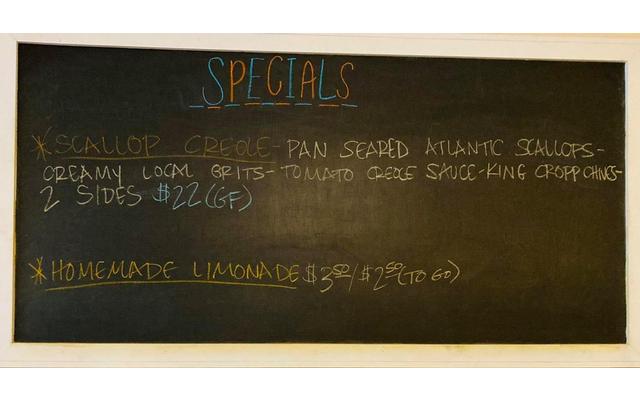 SPECIALS
*SCALLOP CREOLE- PAN SEARED ATLANTIC SCALLOPS-
CREAMY LOCAL GRITS-TOMATO CREOLE SAUCE-KING CROPP CHIVES-
2 SIDES $22 (GF)
*HOMEMADE LIMONADE $3.50/$2.50 (TO GO)